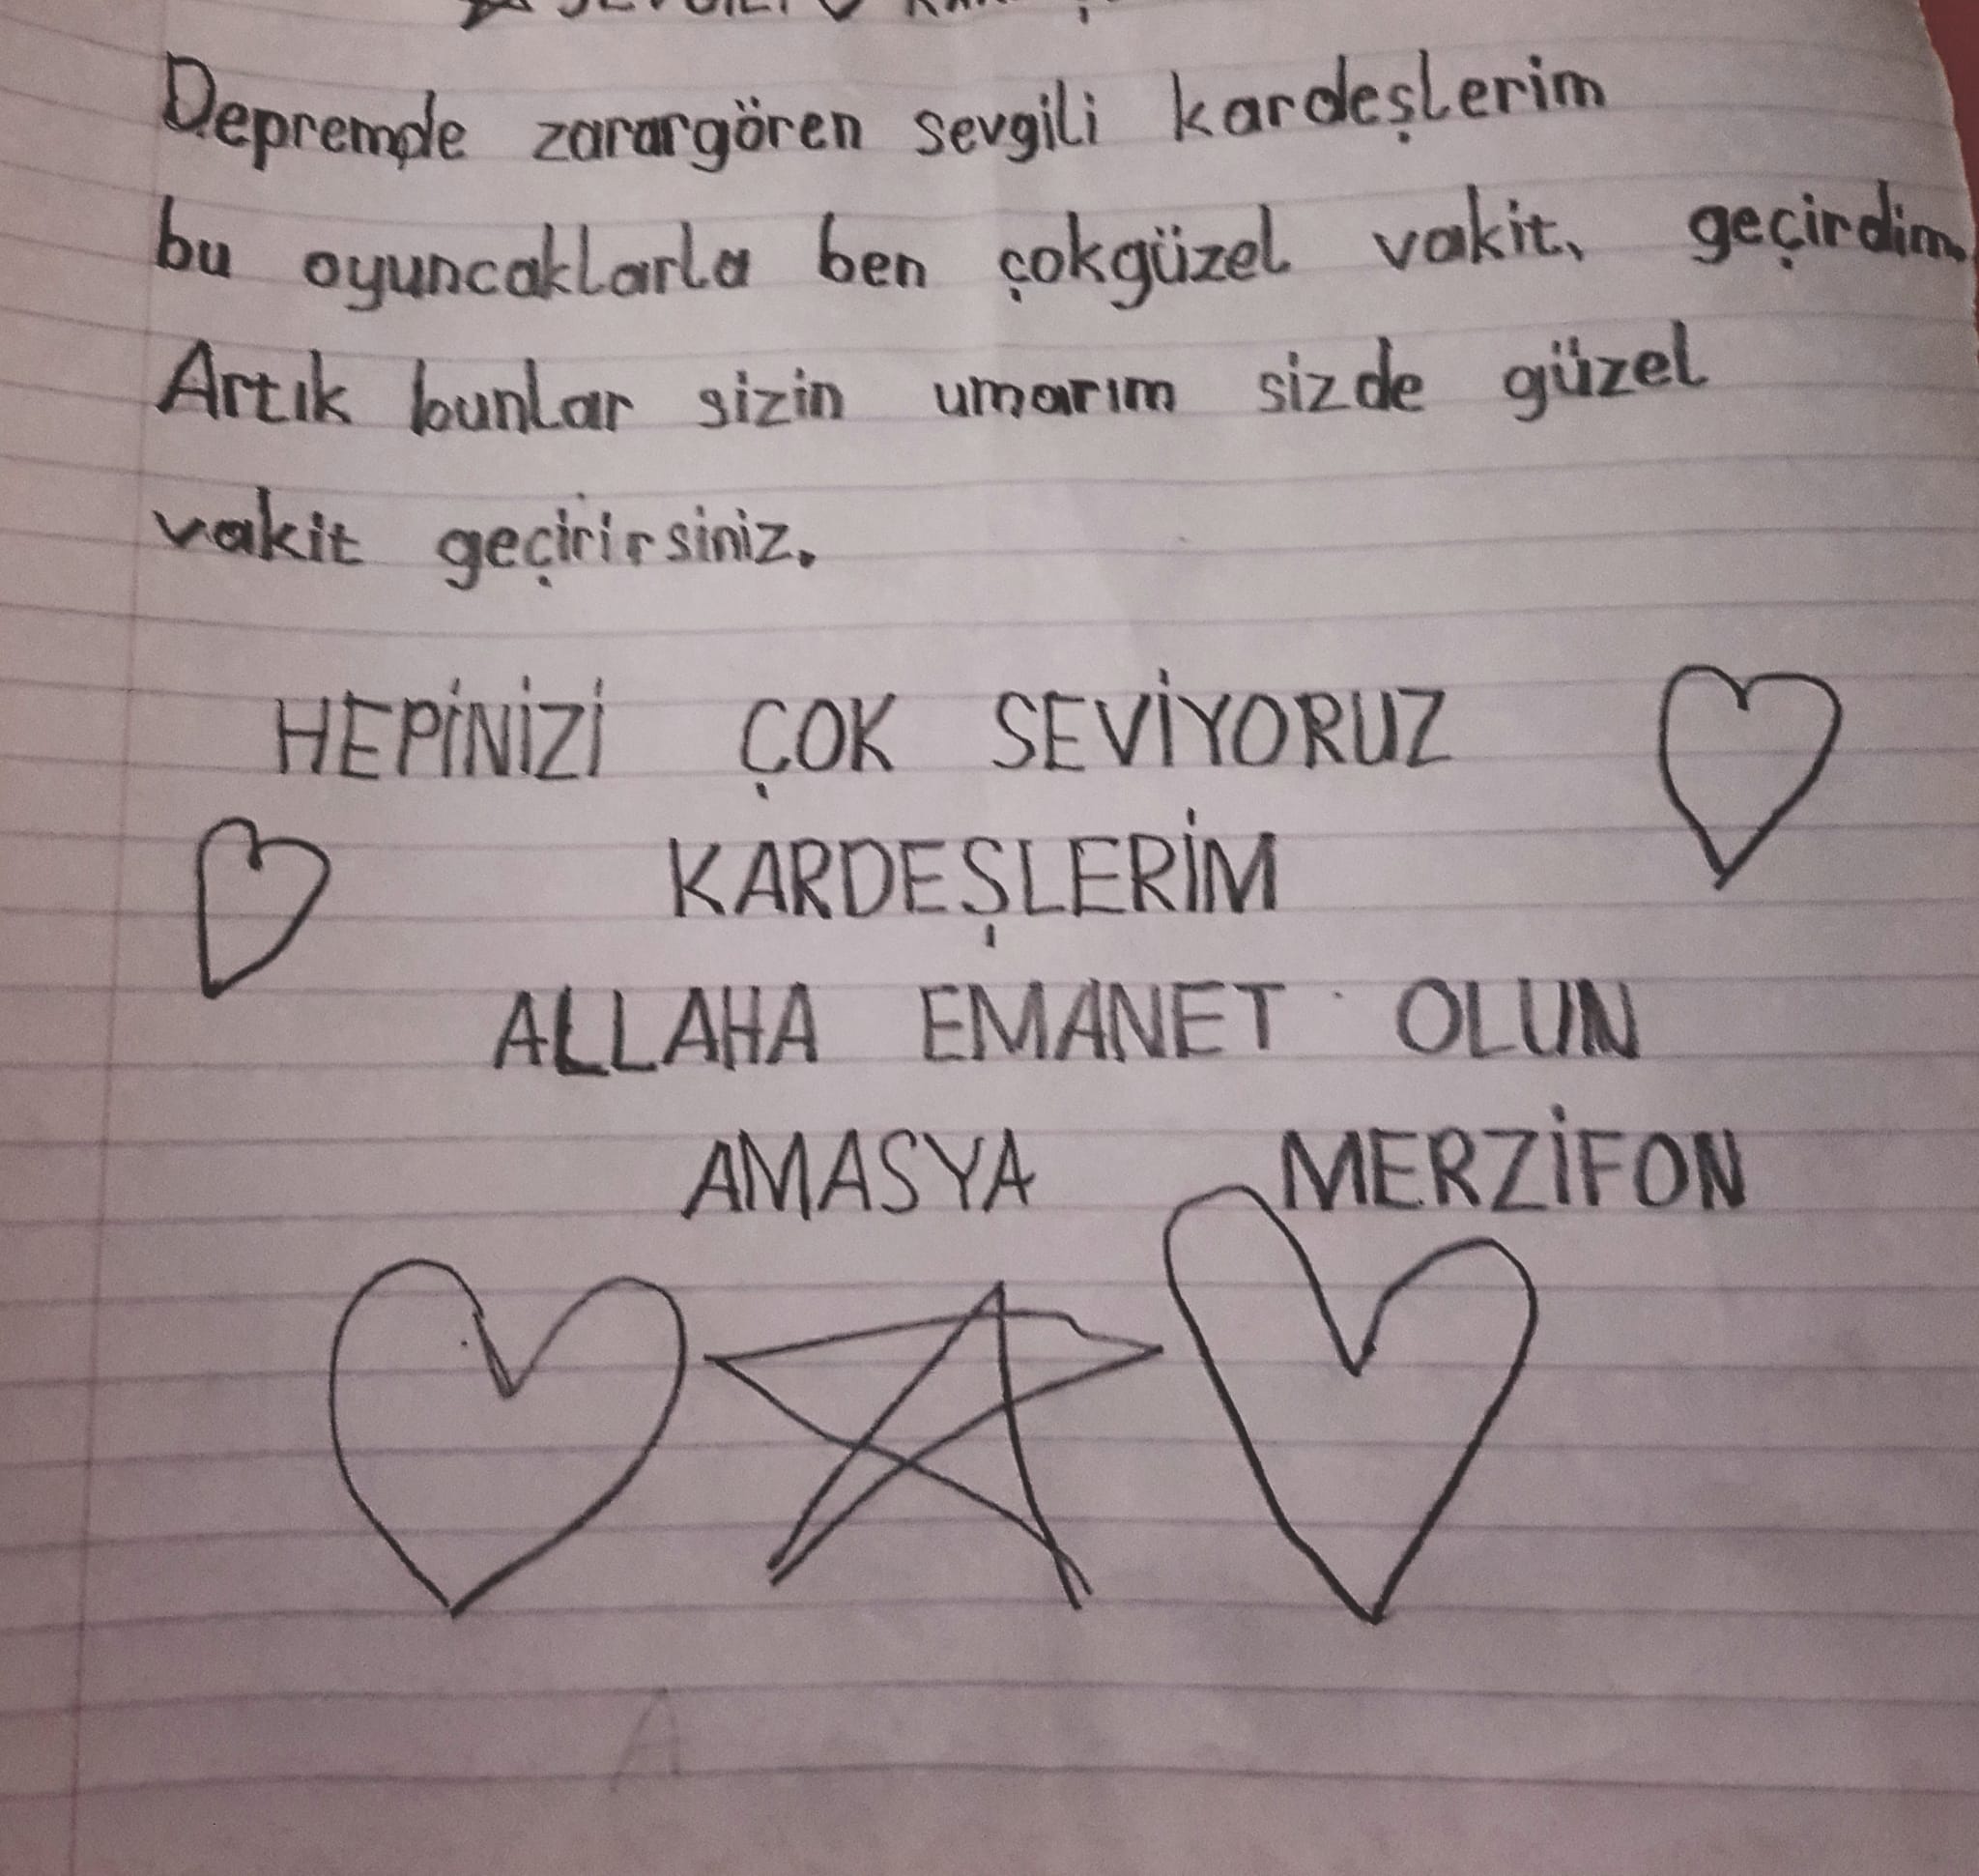 Depremde zarargören sevgili kardeşlerim
bu oyuncaklarla ben çokgüzel vakit, geçirdim.
Artık bunlar sizin umarım sizde güzel
vakit geçirirsiniz.
HEPİNİZİ ÇOK SEVİYORUZ
KARDEŞLERİM
ALLAHA EMANET OLUN
AMASYA MERZİFON
A